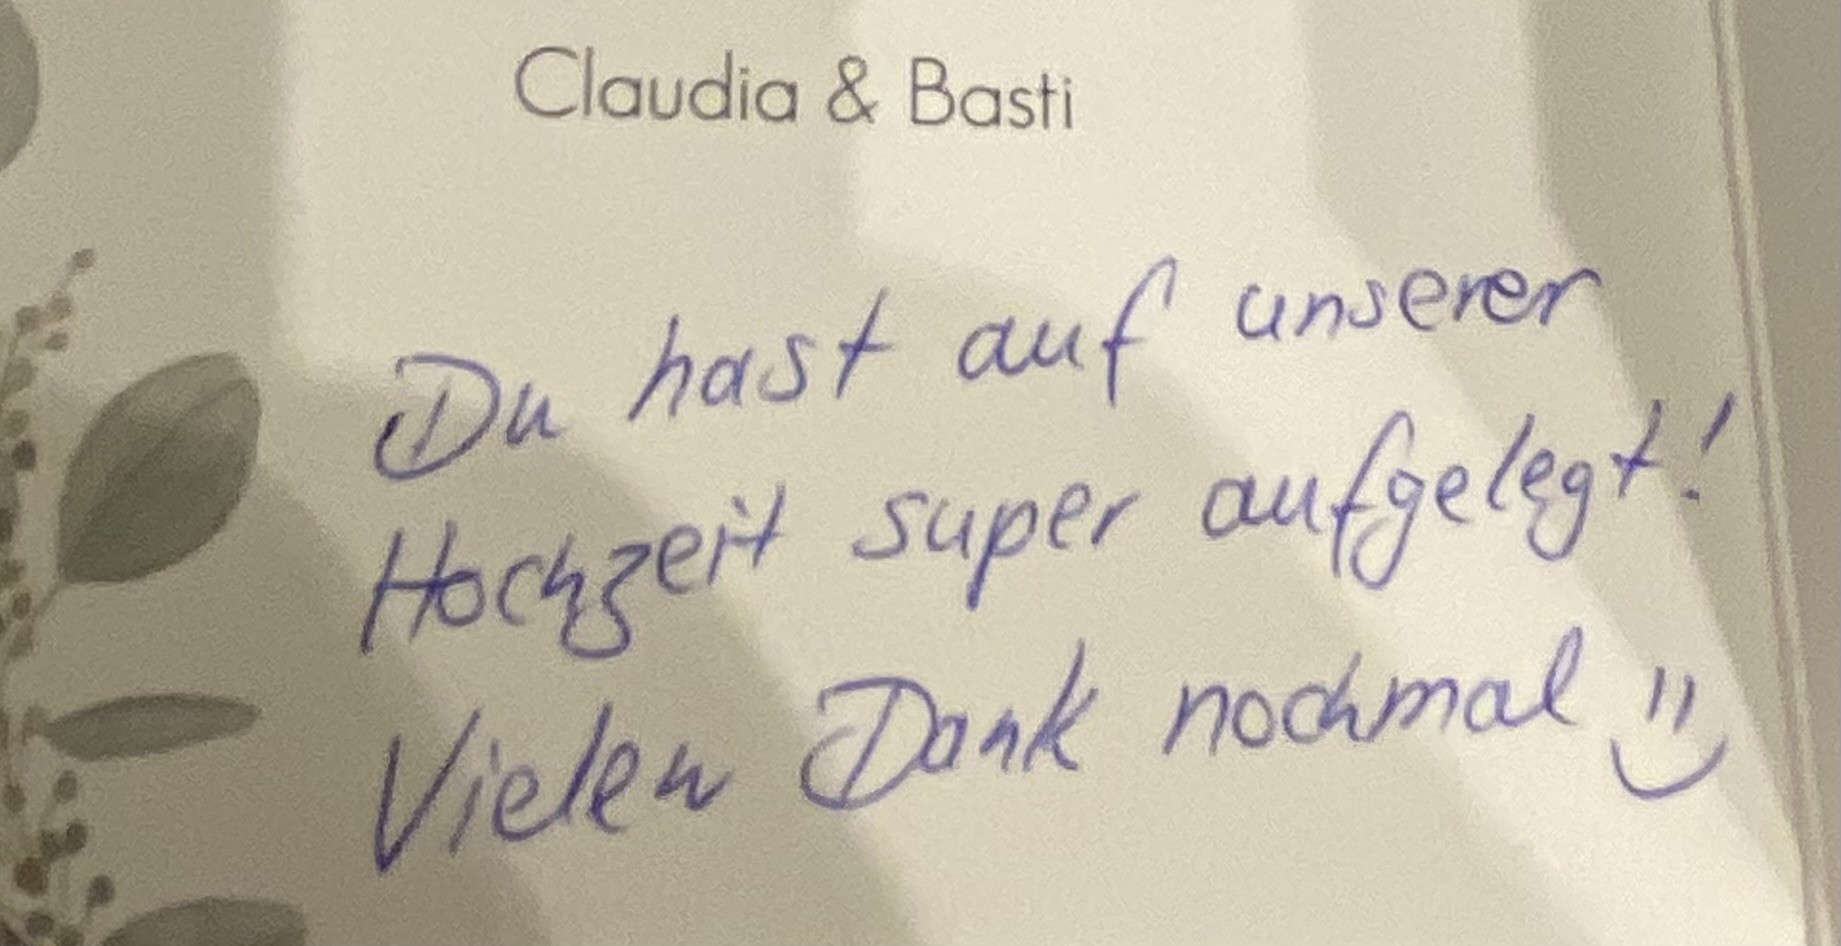 Claudia & Basti
Du hast auf unserer
Hochzeit super aufgelegt!
Vielen Dank nochmal :)